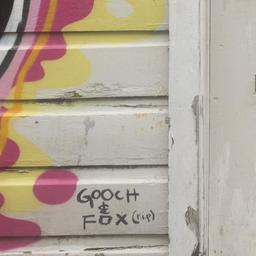 GOOCH
&
FOX (r.i.p)